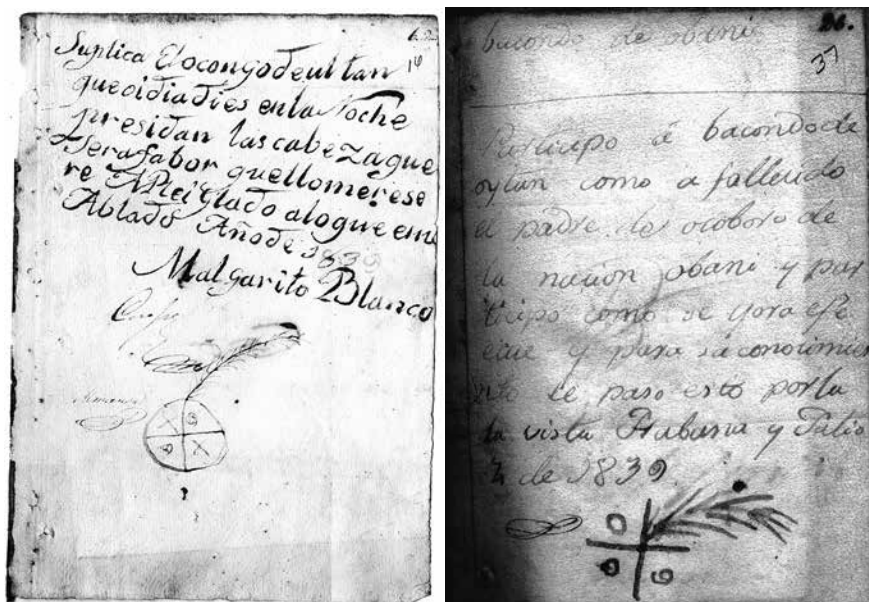 62
14
Suplica El ocongo de ultan
que oi dia dies en la Noche
presidan las cabeza que
sera fabor que llo merese
re A Rei glado a lo que em
Ablado Año de 1839
Malgarito Blanco
26.
37
bacondo de obani
Participo á bacondo de
oytan como a fallecido
el padre de ocoboro de
la nacion obani y par
ticipo como se yora efe
eue y para su conocimie
nto le paso esto por la
la vista Habana y Julio
2 de 1839